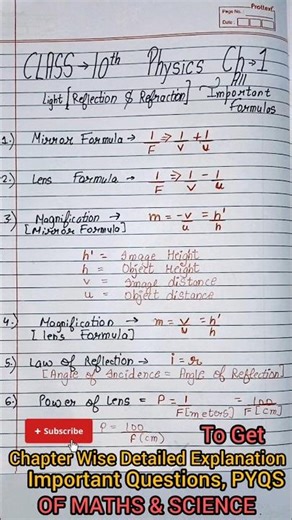 Prottext
Page No.
Date :
CLASS → 10th Physics Ch → 1
Light [Reflection & Refraction] → All Important Formulas
1.) Mirror Formula → 1/F ⇒ 1/v + 1/u
2.) Lens Formula → 1/F ⇒ 1/v - 1/u
3.) Magnification → m = -v/u = h'/h
[Mirror Formula]
h' = Image Height
h = Object Height
v = Image distance
u = Object distance
4.) Magnification → m = v/u = h'/h
[lens Formula]
5.) Law of Reflection → i = r
[Angle of Incidence = Angle of Reflection]
6.) Power of Lens = P = 1/F[meters] = 100/F[cm]
+ Subscribe
P = 100/F(cm)
To Get
Chapter Wise Detailed Explanation
Important Questions, PYQS
OF MATHS & SCIENCE